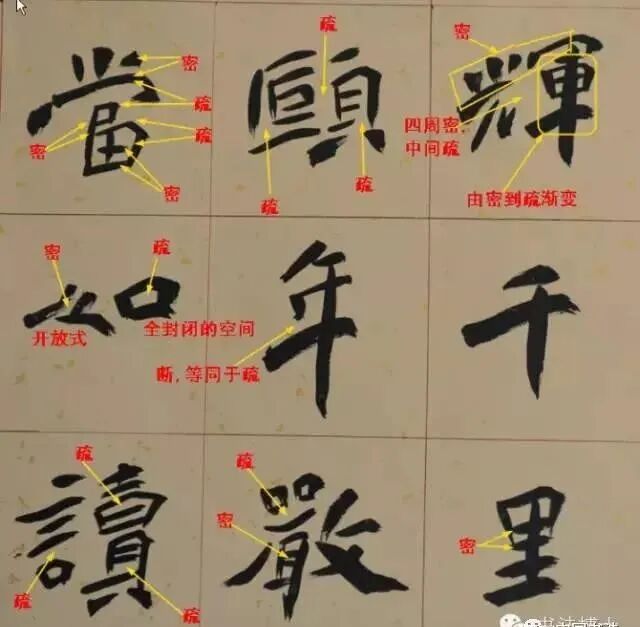 當
密
疏
疏
密
密
頤
疏
疏
疏
輝
密
四周密,
中间疏
由密到疏渐变
如
密
疏
开放式
全封闭的空间
年
断,等同于疏
千
讀
疏
疏
疏
嚴
疏
密
里
密